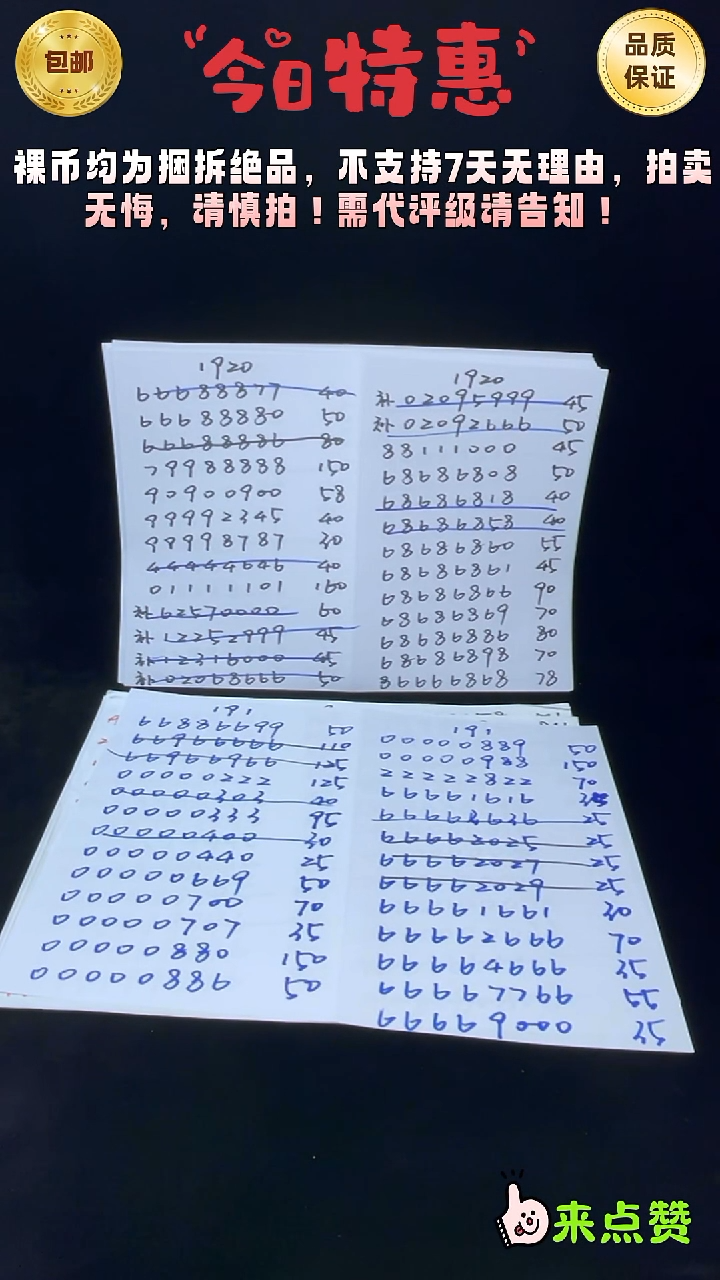 包邮
“今日特惠”
品质
保证
裸币均为捆拆绝品，不支持7天无理由，拍卖
无悔，请慎拍！需代评级请告知！
1920
66688877 40
66688880 50
66688886 80
79988888 150
90900900 58
99992345 40
99998787 30
44444646 40
01111101 160
补62570000 60
补12252999 45
补12316000 45
补02068666 50
1920
补02095999 45
补02092666 50
88111000 45
68686808 50
68686818 40
68686858 40
68686860 55
68686861 45
68686866 90
68686869 70
68686886 80
68686898 70
86666868 78
191
66886699 50
66966666 110
66966966 125
00000222 125
00000303 40
00000333 95
00000400 30
00000440 25
00000669 50
00000700 70
00000707 35
00000880 150
00000886 50
191
00000889 50
00000988 150
22222822 70
66661616
66666636 25
66662025 25
66662027 25
66662029 25
66661661 30
66662666 70
66664666 35
66667766 55
66669000
来点赞